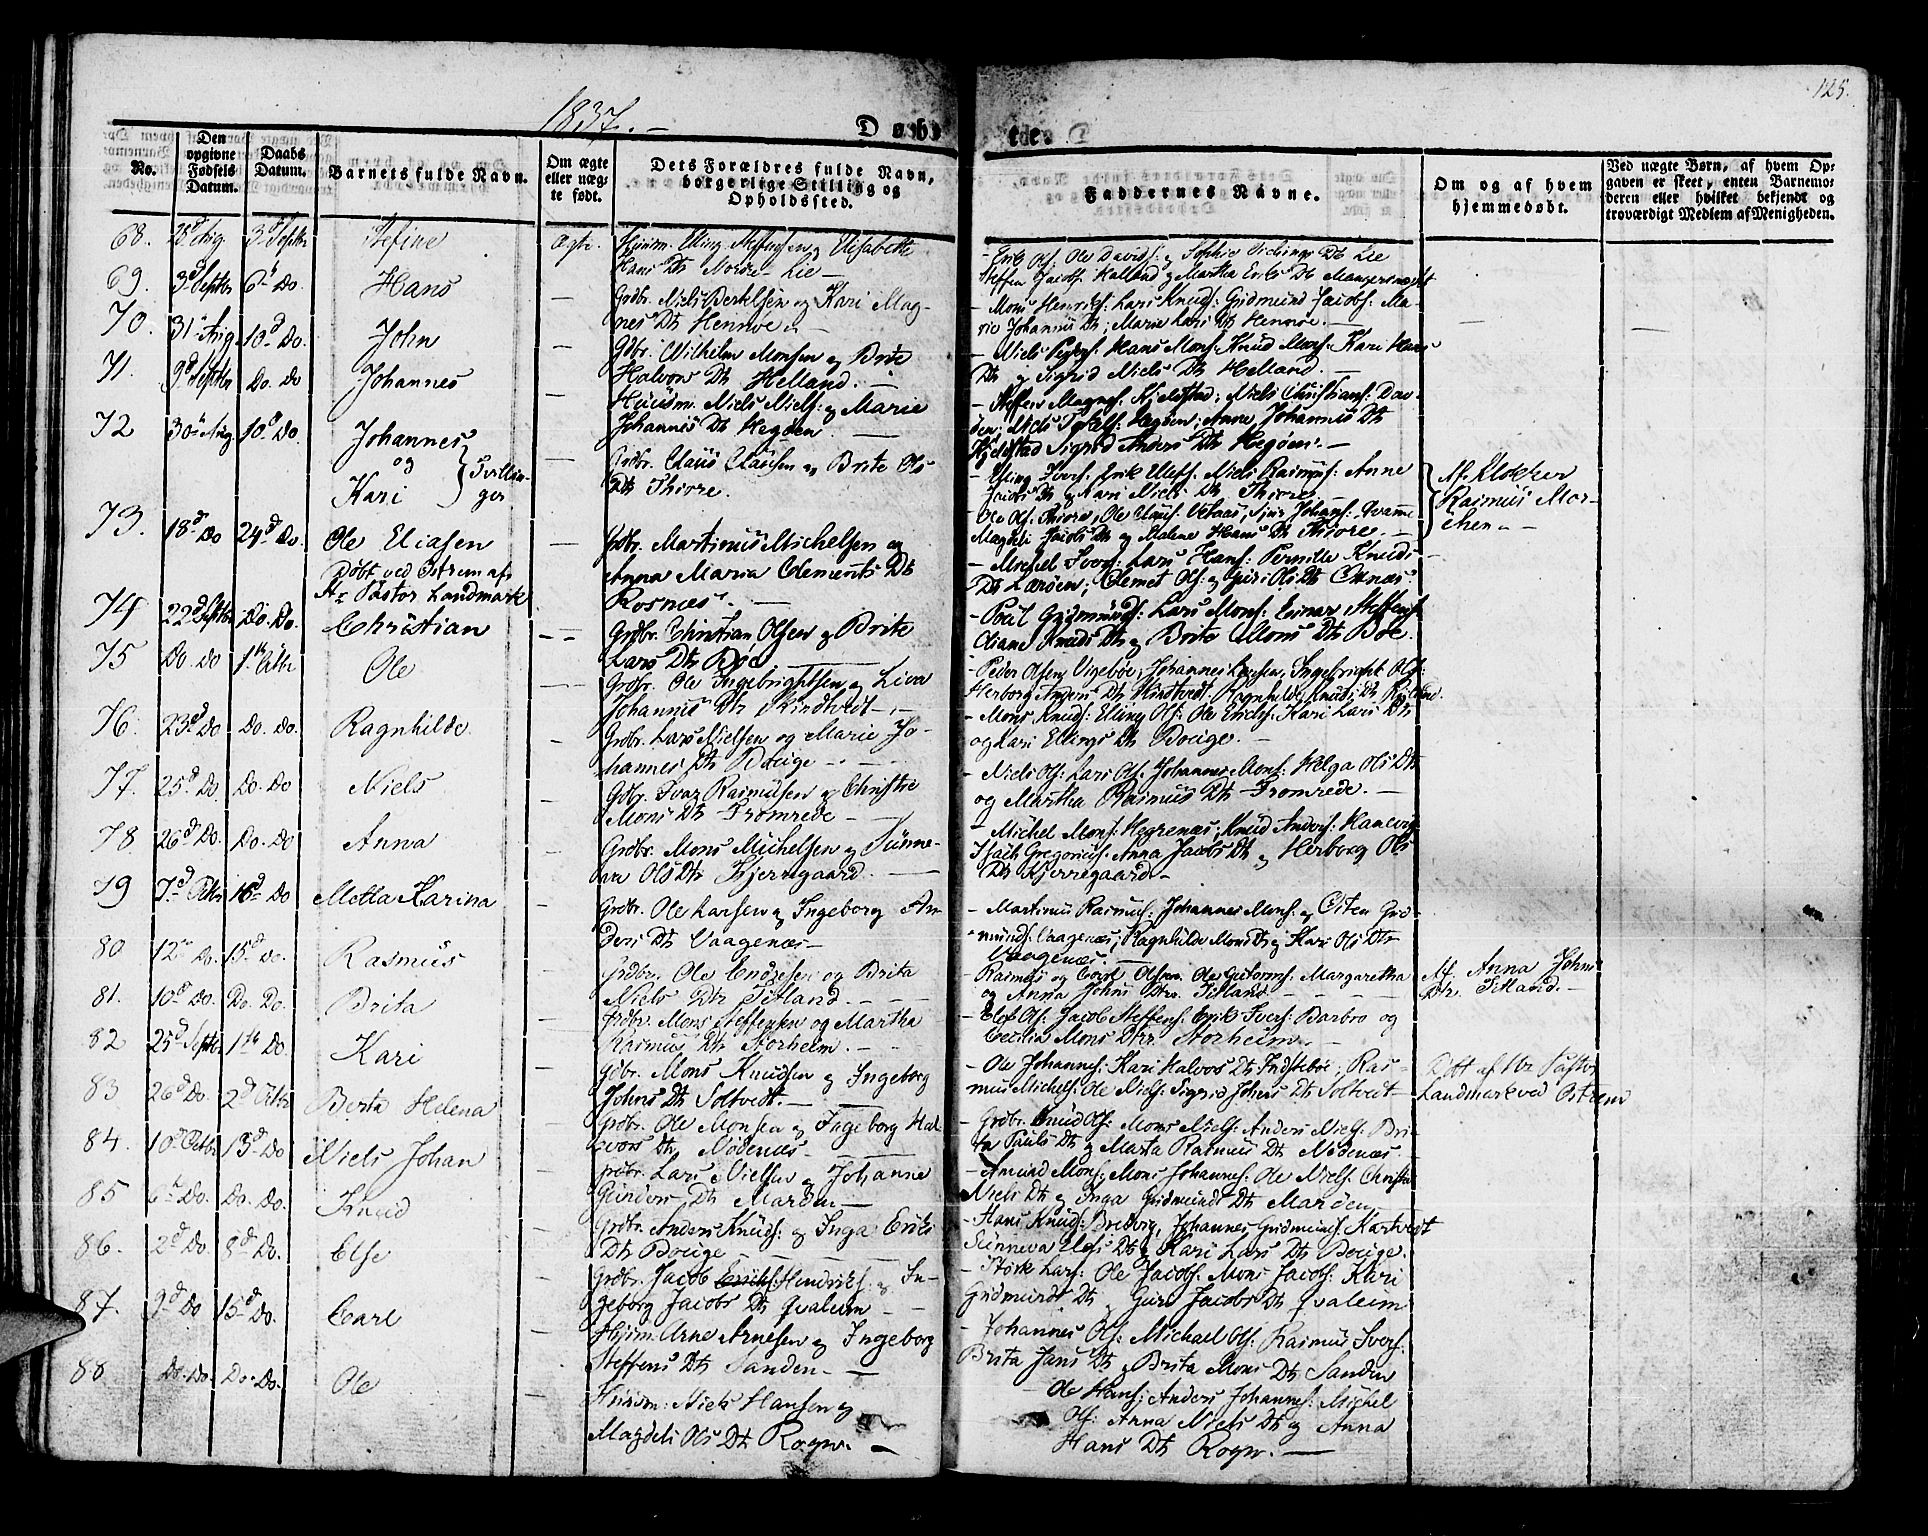 1837.
125.
Døbte.
No.
Den opgivne Fødsels Datum.
Daabs Datum.
Barnets fulde Navn.
Om ægte eller uægte født.
Dets Forældres fulde Navn, borgerlige Stilling og Opholdssted.
Faddernes Navne.
Om og af hvem hjemmedøbt.
Ved uægte Børn, af hvem Opgaven er skeet, enten Barnemoderen eller hvilket bekjendt og troværdigt Medlem af Menigheden.
68. 28d Aug. 3d Septbr Stefine ægte. Huusm. Elling Steffensen og Elisabeth
Hans Dtr Nordre Lie
- Erik Ols. Ole Davids: og Sophie Dtr Lie
Steffen Jacobs: Kalland og Martha Eriks Dtr
69. 3d Septbr 6te Do. Hans — Grdbr. Niels Bertelsen og Kari Mag-
nes Dtr Hennøe. —
- Mons Henriks: Lars Knuds: Gudmund Jacobs: Ma-
rie Johannis Dtr; Marie Lars Dtr Hennøe. —
70. 31te Aug. 10d Do. John — Grdbr. Wilhelm Monsen og Brite
Halvors Dtr Helland. —
- Niels Peders: Hans Mons: Knud Mons: Kari Hans
Dtr og Sigrid Niels Dtr Helland. —
71. 9d Septbr Do. Do Johannes — Huusm. Niels Niels: og Marie
Johannis Dtr Hegøen. —
- Steffen Magnes: Kjelstad; Niels Christians: Dou-
den; Niels Hegøen; Anne Johannis Dtr
Kjelstad Sigrid Anders Dtr Hegøen. —
72 30te Aug 10d Do. Johannes
og
Kari
Tvillin-
ger
— Grdbr. Claus Clausen og Brite Ols
Dtr Thiore.
- Elling Ivers: Erik Ellefs: Niels Rasmus: Anne
Jacobs Dtr og Kari Niels Dtr Thiore —
Ole Ols: Thiore, Ole Claus: Johans: Qvamme
Magdeli Jacobs Dtr og Malene Hans Dtr Thiore. —
Af Klokker
Rasmus Mor-
chen
73. 18d Do 24d Do. Ole Eliasen
Døbt ved Ostrem af
Hr Pastor Landmark
— Grdbr. Martinus Michelsen og
Anna Maria Clements Dtr
Rosnæs. —
- Michel Ivers: Lars Hans: Pernille Knuds
Dtr Lærøen; Clemet Ols: og Guri Ols Dtr
74 22d Septbr Do. Do. Christian — Grdbr. Christian Olsen og Brite
Lars Dtr Bøe
- Poul Gudmunds: Lars Mons: Einar Steffens:
Diane Knuds Dtr og Brite Mons Dtr Bøe.
75 Do. Do 1te Octbr Ole — Grdbr. Ole Ingebrigtsen og Liva
Johannis Dtr Hindtvedt. —
- Peder Olsen Vigebøe; Johannes Ingebrigt Ols:
Herborg Anders Dtr Hindtvedt. Ragnhilde Knuds Dtr
76. 23d Do Do. Do. Ragnhilde — Grdbr. Lars Nielsen og Marie Jo-
hannes Dtr Bouge. —
- Mons Knuds: Elling Ols: Ole Eriks: Kari Lars Dtr
og Kari Ellings Dtr Bouge. —
77. 25d Do. Do. Do Niels — Grdbr. Ivar Rasmusen og Christie
Mons Dtr Fromrede —
- Niels Ols: Lars Ols: Johannes Mons: Helga Ols Dtr
og Martha Rasmus Dtr Fromrede. —
78. 26d Do. Do. Do Anna — Grdbr. Mons Michelsen og Sunne-
va Ols Dtr Kjerregaard. —
- Michel Mons: Hegrenæs; Knud Anders:
Isach Gregorius: Anna Jacobs Dtr og Herborg Ols
Dtr Kjerregaard —
79 7d Octbr 15d Do Metta Karina — Grdbr. Ole Larsen og Ingeborg An-
ders Dtr Vaagenæs —
- Martinus Rasmus: Johannes Mons: og Osten Gud-
munds: Vaagenæs; Ragnhilde Mons Dtr og Kari Ols Dtr
Vaagenæs. —
80 12te Do. 15d Do. Rasmus — Grdbr. Ole Endresen og Brita
Niels Dtr Titland. —
- Rasmus og Olsen Ole Gutorms: Margaretha
og Anna Johns Dtr Titland —
Af Anna Johns
Dtr. Titland. —
81. 10d Do. Do. Do. Brita — Grdbr. Mons Steffensen og Martha
Rasmus Dtr Storheim. —
- Elef Ols: Jacob Steffens: Erik Ivers: Barbro og
Cecilia Mons Dtr Storheim. —
82 25d Septbr 1te Do. Kari — Grdbr. Mons Knudsen og Ingeborg
Johns Dtr Soltvedt. —
- Ole Johannes: Kari Halvors Dtr Indstebøe; Ras-
mus Michels: Ole Niels: Sigrid Johns Dtr Soltvedt —
Døbt af Hr Pastor
Landmark ved Ostrem
83 26d Do. 2d Octbr Berta Helena — Grdbr. Ole Monsen og Ingeborg Hal-
vors Dtr Nødenæs —
- Grdbr. Knud Ols: Mons Niels: Anders Niels: Bri-
ta Pauls Dtr og Marta Rasmus Dtr Nødenæs —
84. 10d Octbr 13d Do Niels Johan — Grdbr. Lars Nielsen og Johanne
Gunders Dtr Marøen —
- Amund Mons: Mons Johannes: Ole Niels: Christi
Niels Dtr og Inga Gudmunds Dtr Marøen
85 6d Do. Do. Do. Knud — Grdbr. Anders Knuds: og Inga Eriks
Dtr Bouge —
- Hans Knuds: Bredvig, Johannes Gudmunds: Kartvedt
Sunneva Elefs Dtr og Kari Lars Dtr Bouge.
86. 2d Do. 8d Do. Else — Grdbr. Jacob Hendriks: og In-
geborg Jacobs Dtr Qvaleim —
- Størk Lars: Ole Jacobs: Mons Jacobs: Kari
Gudmunds Dtr og Guri Jacobs Dtr Qvaleim
87. 9d Do 15d Do. Carl — Huusm: Arne Arnesen og Ingeborg
Steffens Dtr Sanden —
- Johannes Ols: Michael Ols: Rasmus Ivers:
Brita Jans Dtr og Brita Mons Dtr Sanden
88 Do. Do. Do. Do. Ole — Huusm: Niels Hansen og
Magdeli Ols Dtr Rogn. —
- Ole Hans: Anders Johannes: Michel
Ols: Anna Niels Dtr og Anna
Hans Dtr Rogn. —